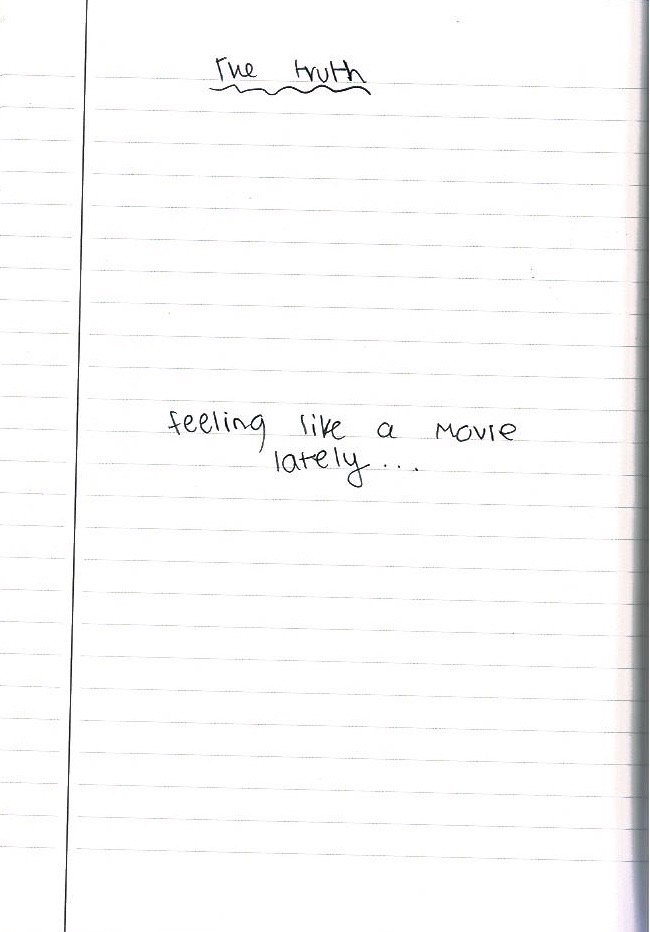 The truth
feeling like a movie
lately...